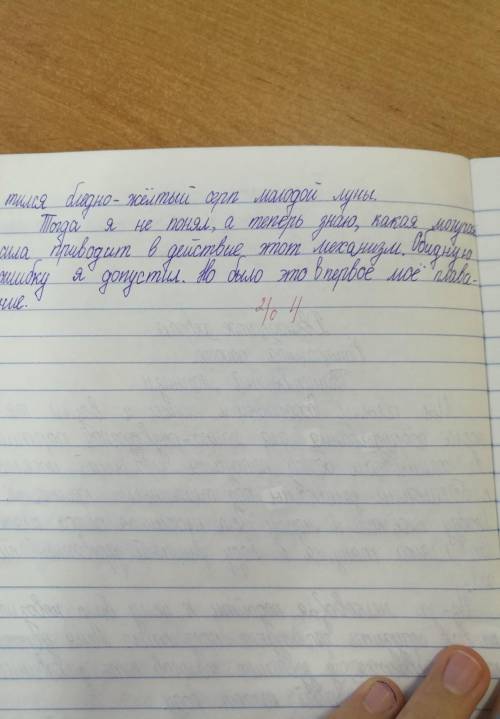 тился бледно-жёлтый серп молодой луны.
Тогда я не понял, а теперь знаю, какая могучая
сила приводит в действие этот механизм. Обидную
ошибку я допустил. Но было это впервое моё плава-
ние.
2/0 4